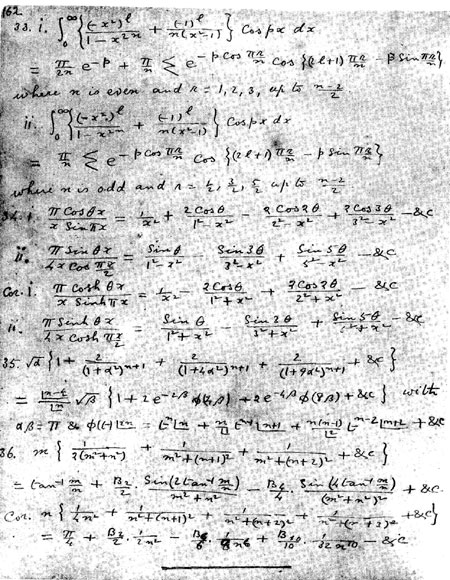 162
33. i. ∫₀^∞ { (-x²)^l / (1-x^{2n}) + (-1)^l / n(x²-1) } Cos px dx
= π/2n e^{-p} + π/n Σ e^{-p cos πr/n} cos {(2l+1) πr/n - p Sin πr/n}
where n is even and r = 1, 2, 3, up to (n-2)/2
ii. ∫₀^∞ { (-x²)^l / (1-x^{2n}) + (-1)^l / n(x²-1) } Cos px dx
= π/n Σ e^{-p Cos πr/n} Cos {(2l+1) πr/n - p Sin πr/n}
where n is odd and r = 1/2, 3/2, 5/2 up to (n-2)/2
34. π Cos θx / x Sin πx = 1/x² + 2Cos θ/(1²-x²) - 2Cos 2θ/(2²-x²) + 2Cos 3θ/(3²-x²) - &c
ii. π Sin θx / 4x Cos πx/2 = Sin θ/(1²-x²) - Sin 3θ/(3²-x²) + Sin 5θ/(5²-x²) - &c
Cor. i. π Cosh θx / x Sinh πx = 1/x² - 2Cos θ/(1²+x²) + 2Cos 2θ/(2²+x²) - &c
ii. π Sinh θx / 4x Cosh πx/2 = Sin θ/(1²+x²) - Sin 2θ/(3²+x²) + Sin 5θ/(5²+x²) - &c
35. √α {1 + 2/(1+α²)^{n+1} + 2/(1+4α²)^{n+1} + 2/(1+9α²)^{n+1} + &c}
√β {1 + 2e^{-2β} φ(2β) + 2e^{-4β} φ(4β) + &c} with
αβ = π &
36. n { 1/2(m²+n²) + 1/(m²+(n+1)²) + 1/(m²+(n+2)²) + &c }
= tan⁻¹ m/n + B₂/2 · Sin(2 tan⁻¹ m/n)/(m²+n²) - B₄/4 · Sin(4 tan⁻¹ m/n)/(m²+n²)² + &c.
Cor. n { 1/4n² + 1/(n²+(n+1)²) + 1/(n²+(n+2)²) + 1/(n²+(n+3)²) + &c }
= π/4 + B₂/2 · 1/2n² - B₆/6 · 1/8n⁶ + B₁₀/10 · 1/32n¹⁰ - &c